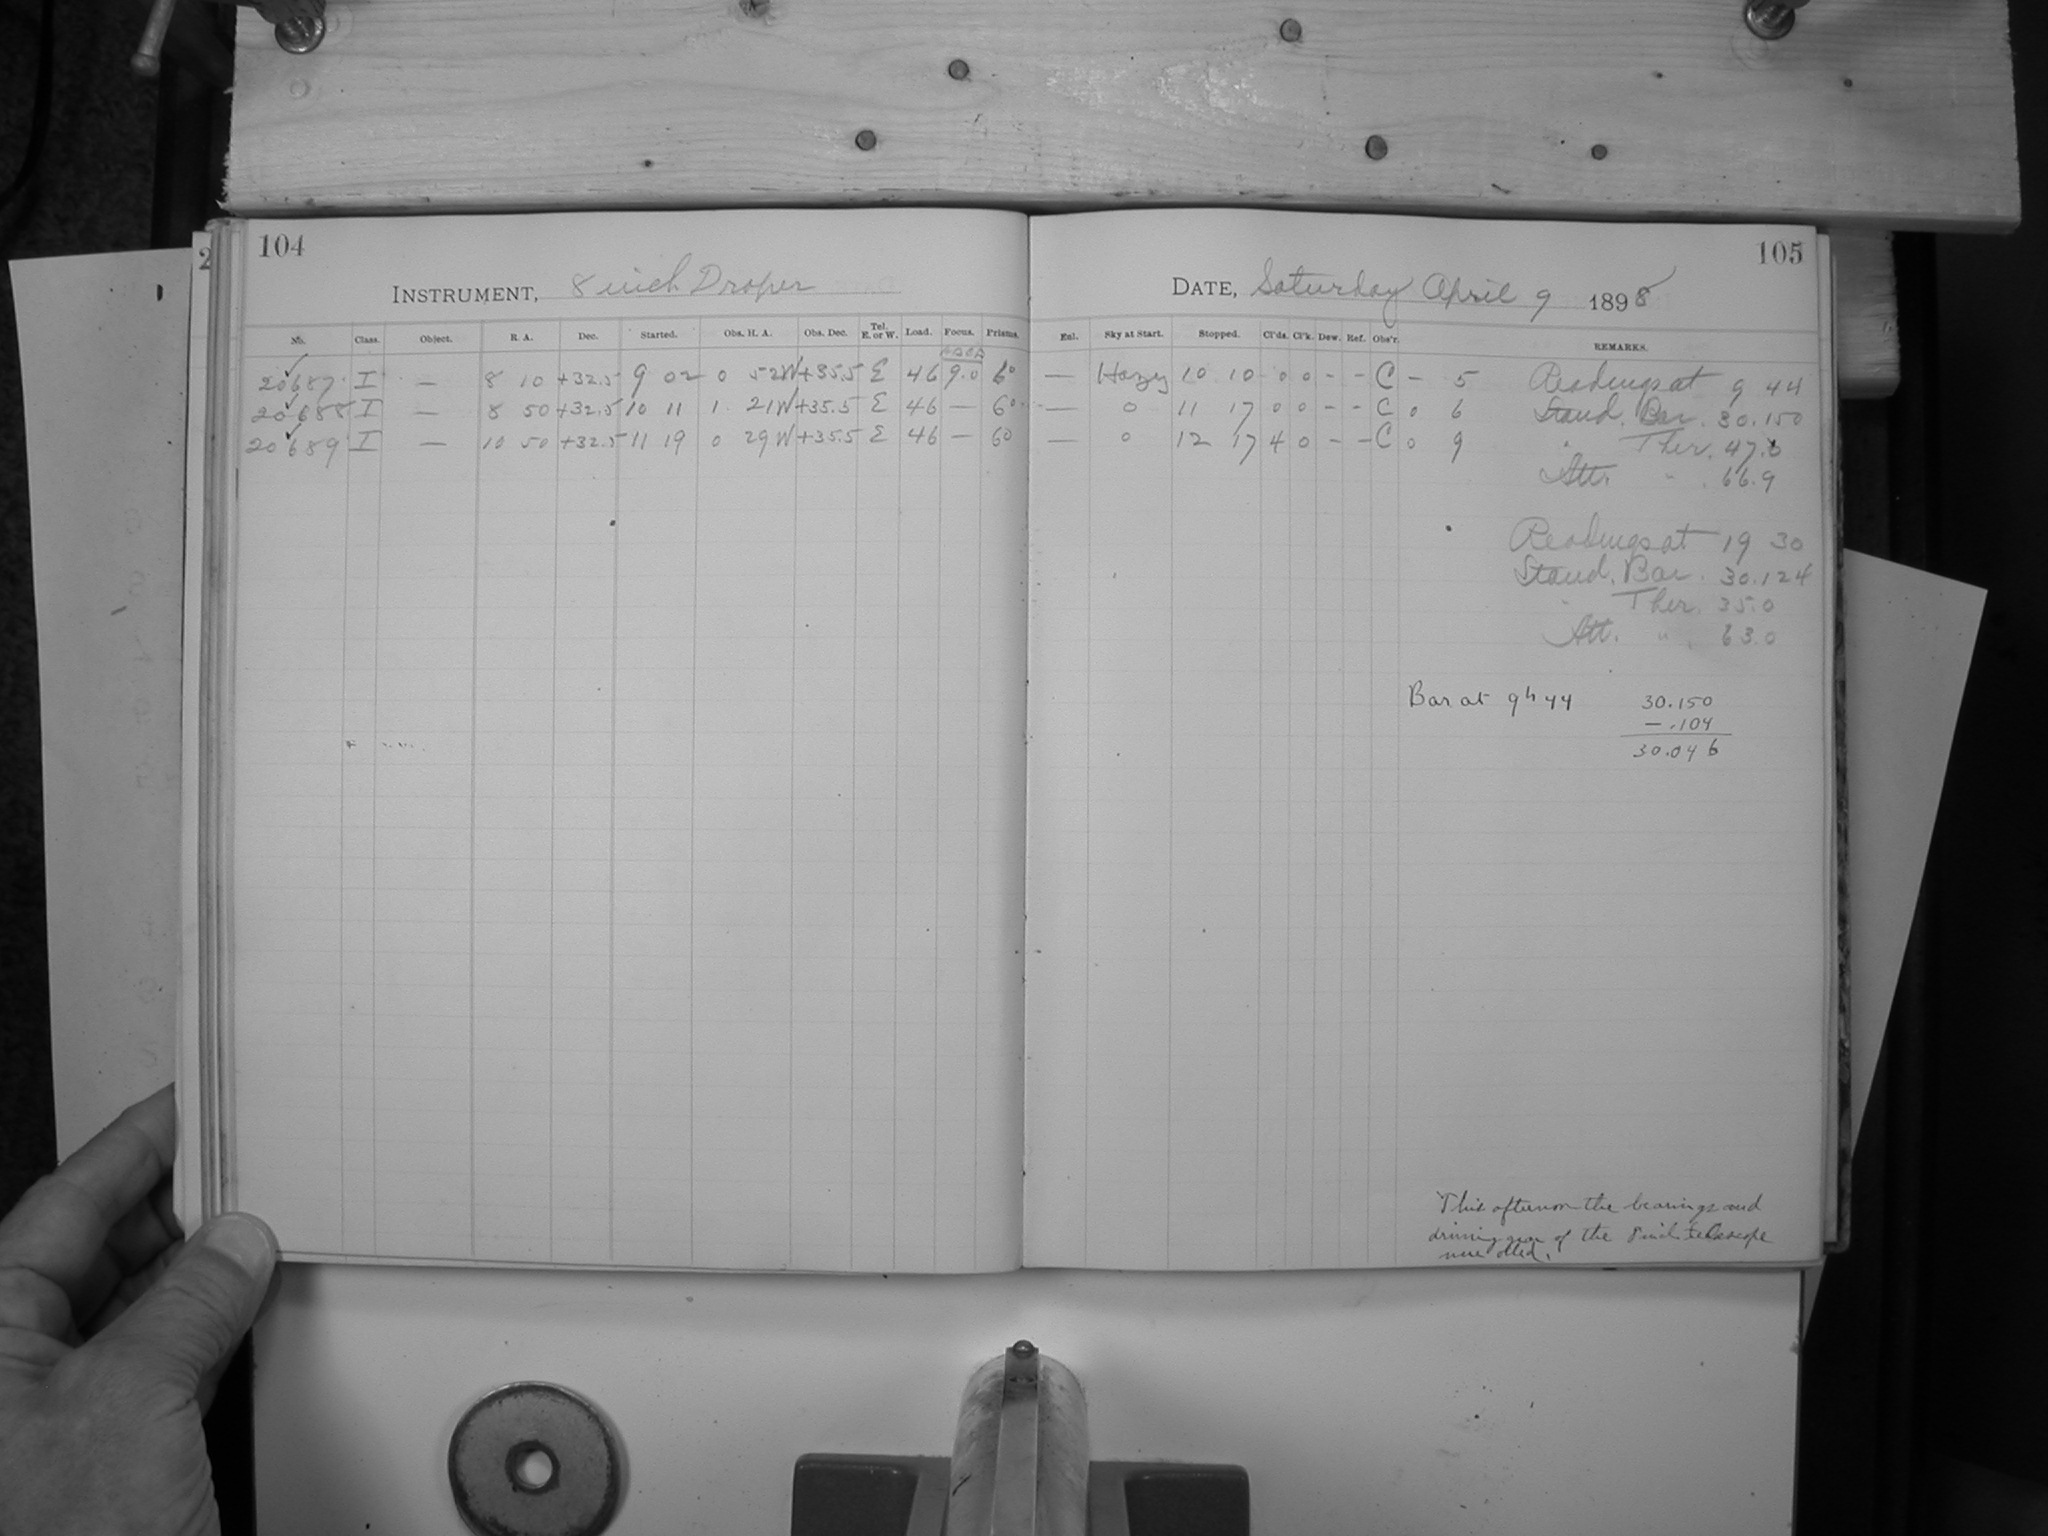 104
INSTRUMENT, 8 inch Draper
No. Class. Object. R. A. Dec. Started. Obs. H. A. Obs. Dec. Tel. E. or W. Load. Focus. Prisms.
20687 I — 8 10 +32.5 9 02 0 52W +35.5 E 46 9.0 60
20688 I — 8 50 +32.5 10 11 1 21W +35.5 E 46 — 60
20689 I — 10 50 +32.5 11 19 0 29W +35.5 E 46 — 60
105
DATE, Saturday April 9 1898
Enl. Sky at Start. Stopped. Cl'ds. Cl'k. Dew. Ref. Obs'r. REMARKS.
— Hazy 10 10 0 0 - - C - 5 Readings at 9 44
— 0 11 17 0 0 - - C 0 6 Stand. Bar. 30.150
— 0 12 17 4 0 - - C 0 9 " Ther. 47.0
Att. " 66.9
Readings at 19 30
Stand. Bar. 30.124
" Ther. 35.0
Att. " 63.0
Bar at 9h 44 30.150
— .104
30.046
This afternoon the bearings and
driving gear of the 8 inch telescope
were oiled.
2